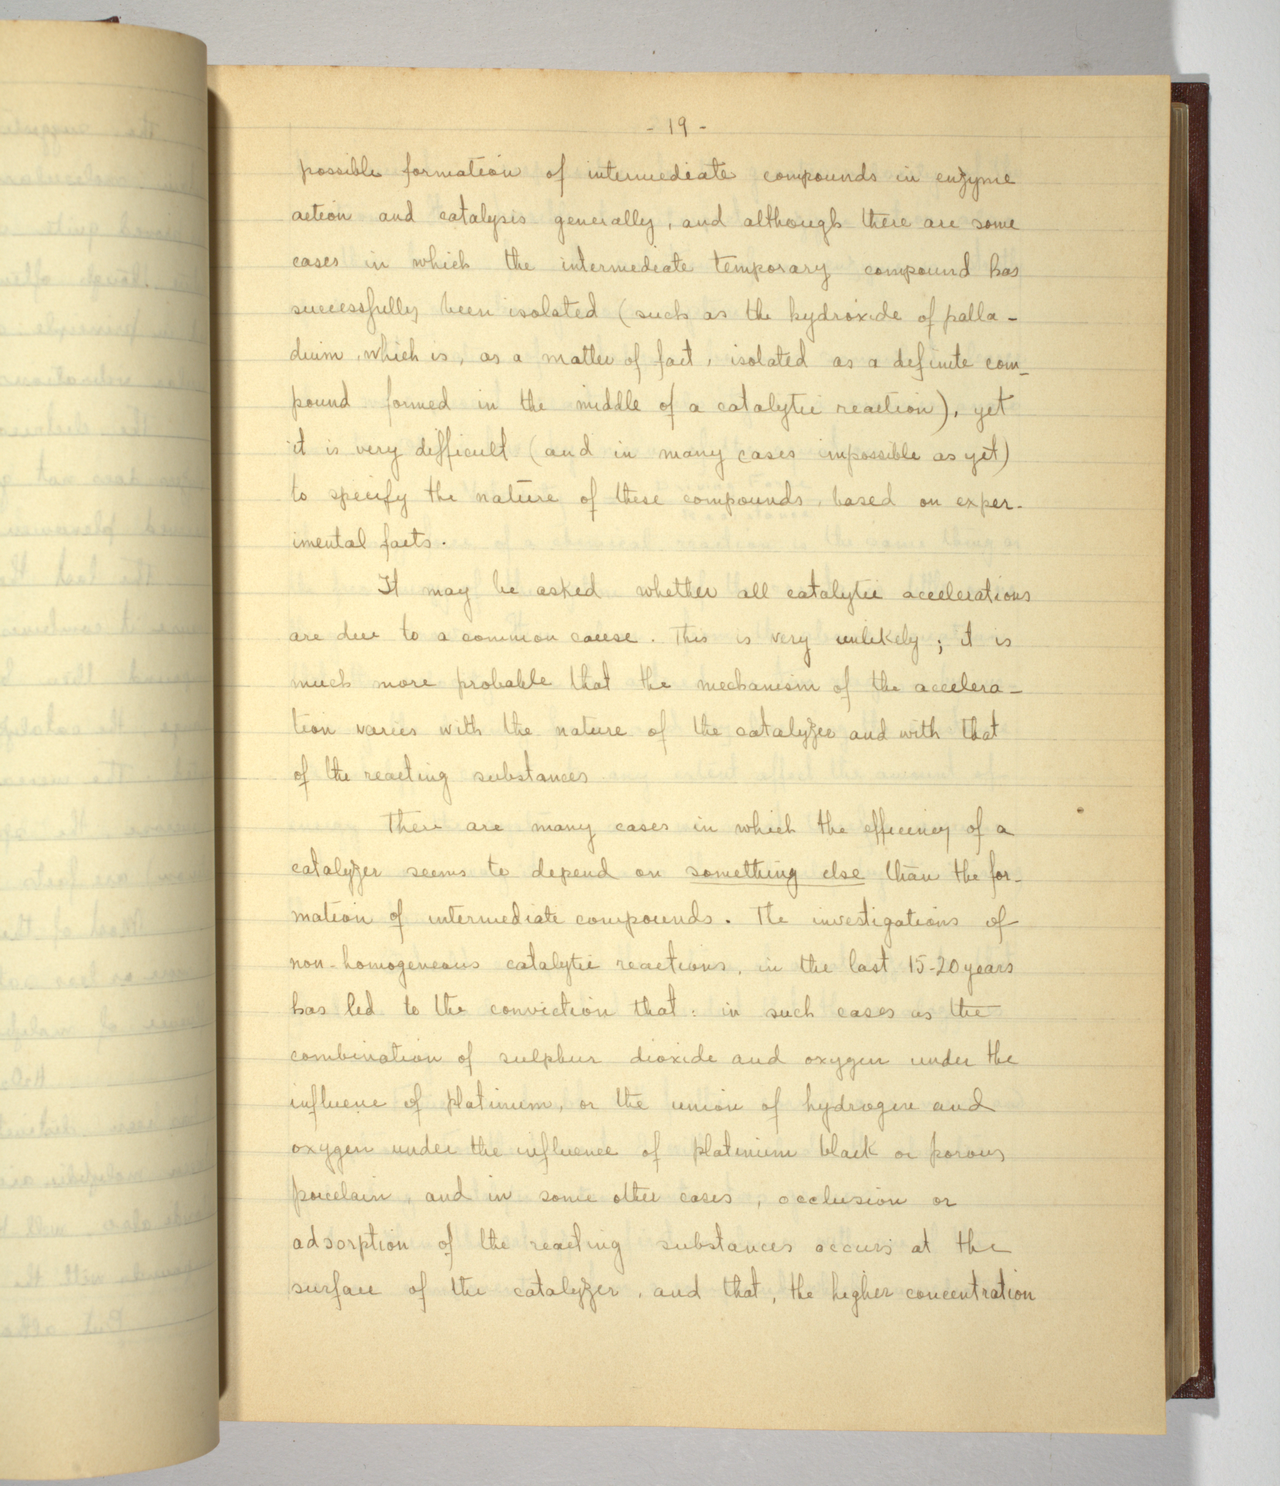 - 19 -
possible formation of intermediate compounds in enzyme
action and catalysis generally, and although there are some
cases in which the intermediate temporary compound has
successfully been isolated (such as the hydroxide of palla-
dium, which is, as a matter of fact, isolated as a definite com-
pound formed in the middle of a catalytic reaction), yet
it is very difficult (and in many cases impossible as yet)
to specify the nature of these compounds, based on exper-
imental facts.
It may be asked whether all catalytic accelerations
are due to a common cause. This is very unlikely; it is
much more probable that the mechanism of the accelera-
tion varies with the nature of the catalyzer and with that
of the reacting substances
There are many cases in which the efficiency of a
catalyzer seems to depend on something else than the for-
mation of intermediate compounds. The investigations of
non-homogeneous catalytic reactions, in the last 15-20 years
has led to the conviction that: in such cases as the
combination of sulphur dioxide and oxygen under the
influence of platinum, or the union of hydrogen and
oxygen under the influence of platinum black or porous
porcelain, and in some other cases, occlusion or
adsorption of the reacting substances occurs at the
surface of the catalyzer, and that, the higher concentration